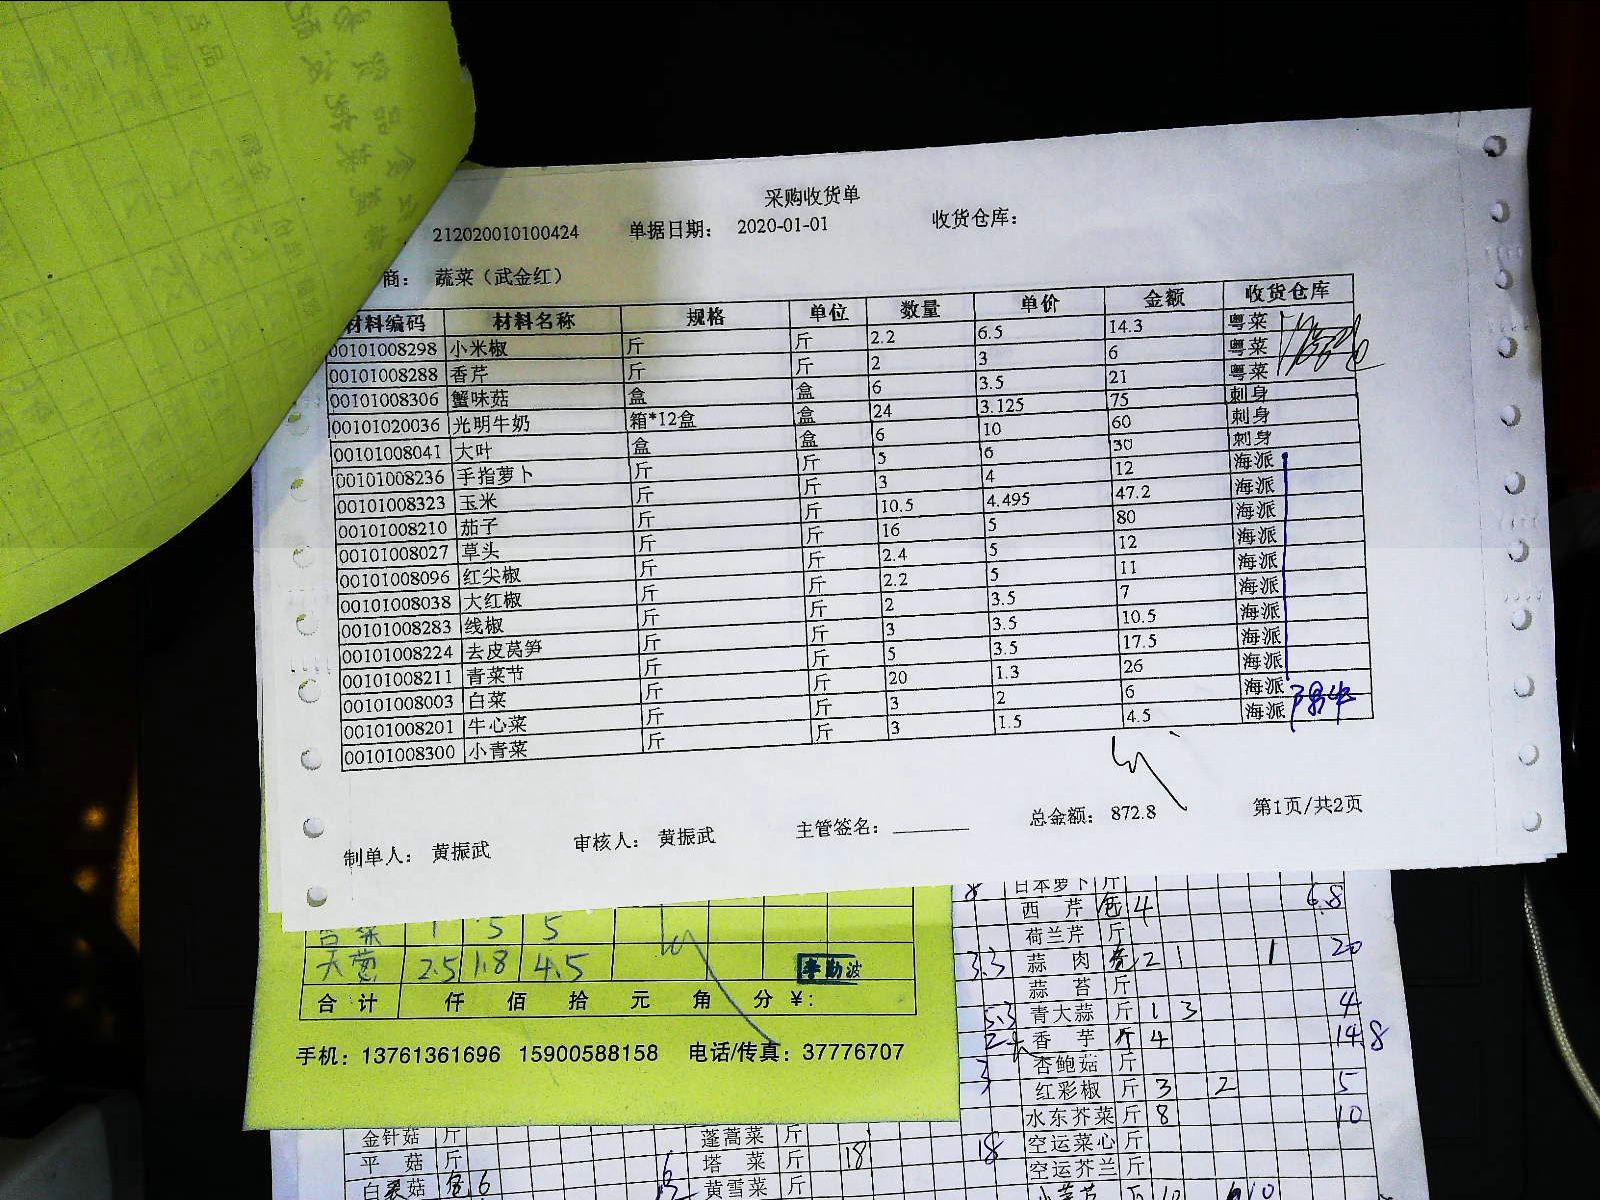 采购收货单
212020010100424 单据日期： 2020-01-01 收货仓库：
商： 蔬菜（武金红）
材料编码 材料名称 规格 单位 数量 单价 金额 收货仓库
00101008298 小米椒 斤 斤 2.2 6.5 14.3 粤菜
00101008288 香芹 斤 斤 2 3 6 粤菜
00101008306 蟹味菇 盒 盒 6 3.5 21 粤菜
00101020036 光明牛奶 箱*12盒 盒 24 3.125 75 刺身
00101008041 大叶 盒 盒 6 10 60 刺身
00101008236 手指萝卜 斤 斤 5 6 30 刺身
00101008323 玉米 斤 斤 3 4 12 海派
00101008210 茄子 斤 斤 10.5 4.495 47.2 海派
00101008027 草头 斤 斤 16 5 80 海派
00101008096 红尖椒 斤 斤 2.4 5 12 海派
00101008038 大红椒 斤 斤 2.2 5 11 海派
00101008283 线椒 斤 斤 2 3.5 7 海派
00101008224 去皮莴笋 斤 斤 3 3.5 10.5 海派
00101008211 青菜节 斤 斤 5 3.5 17.5 海派
00101008003 白菜 斤 斤 20 1.3 26 海派
00101008201 牛心菜 斤 斤 3 2 6 海派
00101008300 小青菜 斤 斤 3 1.5 4.5 海派
制单人： 黄振武 审核人： 黄振武 主管签名： 总金额： 872.8 第1页/共2页
1 5 5
大葱 2.5 1.8 4.5
合计 仟 佰 拾 元 角 分 ¥：
手机：13761361696 15900588158 电话/传真：37776707
8 日本萝卜 斤
西芹 4 6.8
荷兰芹 斤
3.3 蒜肉 2 1 1 20
蒜苔 斤
5.3 青大蒜 斤 1 3 4
2 香芋 斤 4 14.8
3 杏鲍菇 斤
红彩椒 斤 3 2 5
水东芥菜 斤 8 10
金针菇 斤 蓬蒿菜 斤 空运菜心 斤
平菇 斤 塔菜 斤 18 18 空运芥兰 斤
黄雪菜 斤